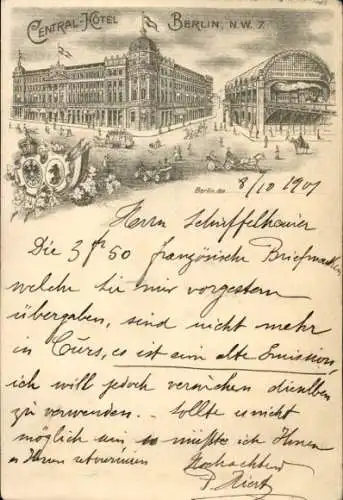 CENTRAL-HÔTEL BERLIN, N.W. 7.
Berlin, den 8/10 1901
Herrn Schiffelhauer
Die 3 fr 50 französische Briefmarken
welche Sie mir vorgestern
übergaben, sind nicht mehr
in Curs, es ist eine alte Emission,
ich will jedoch versuchen dieselben
zu verwenden. sollte es nicht
möglich sein so müßte ich Ihnen
retournieren
Hochachtend